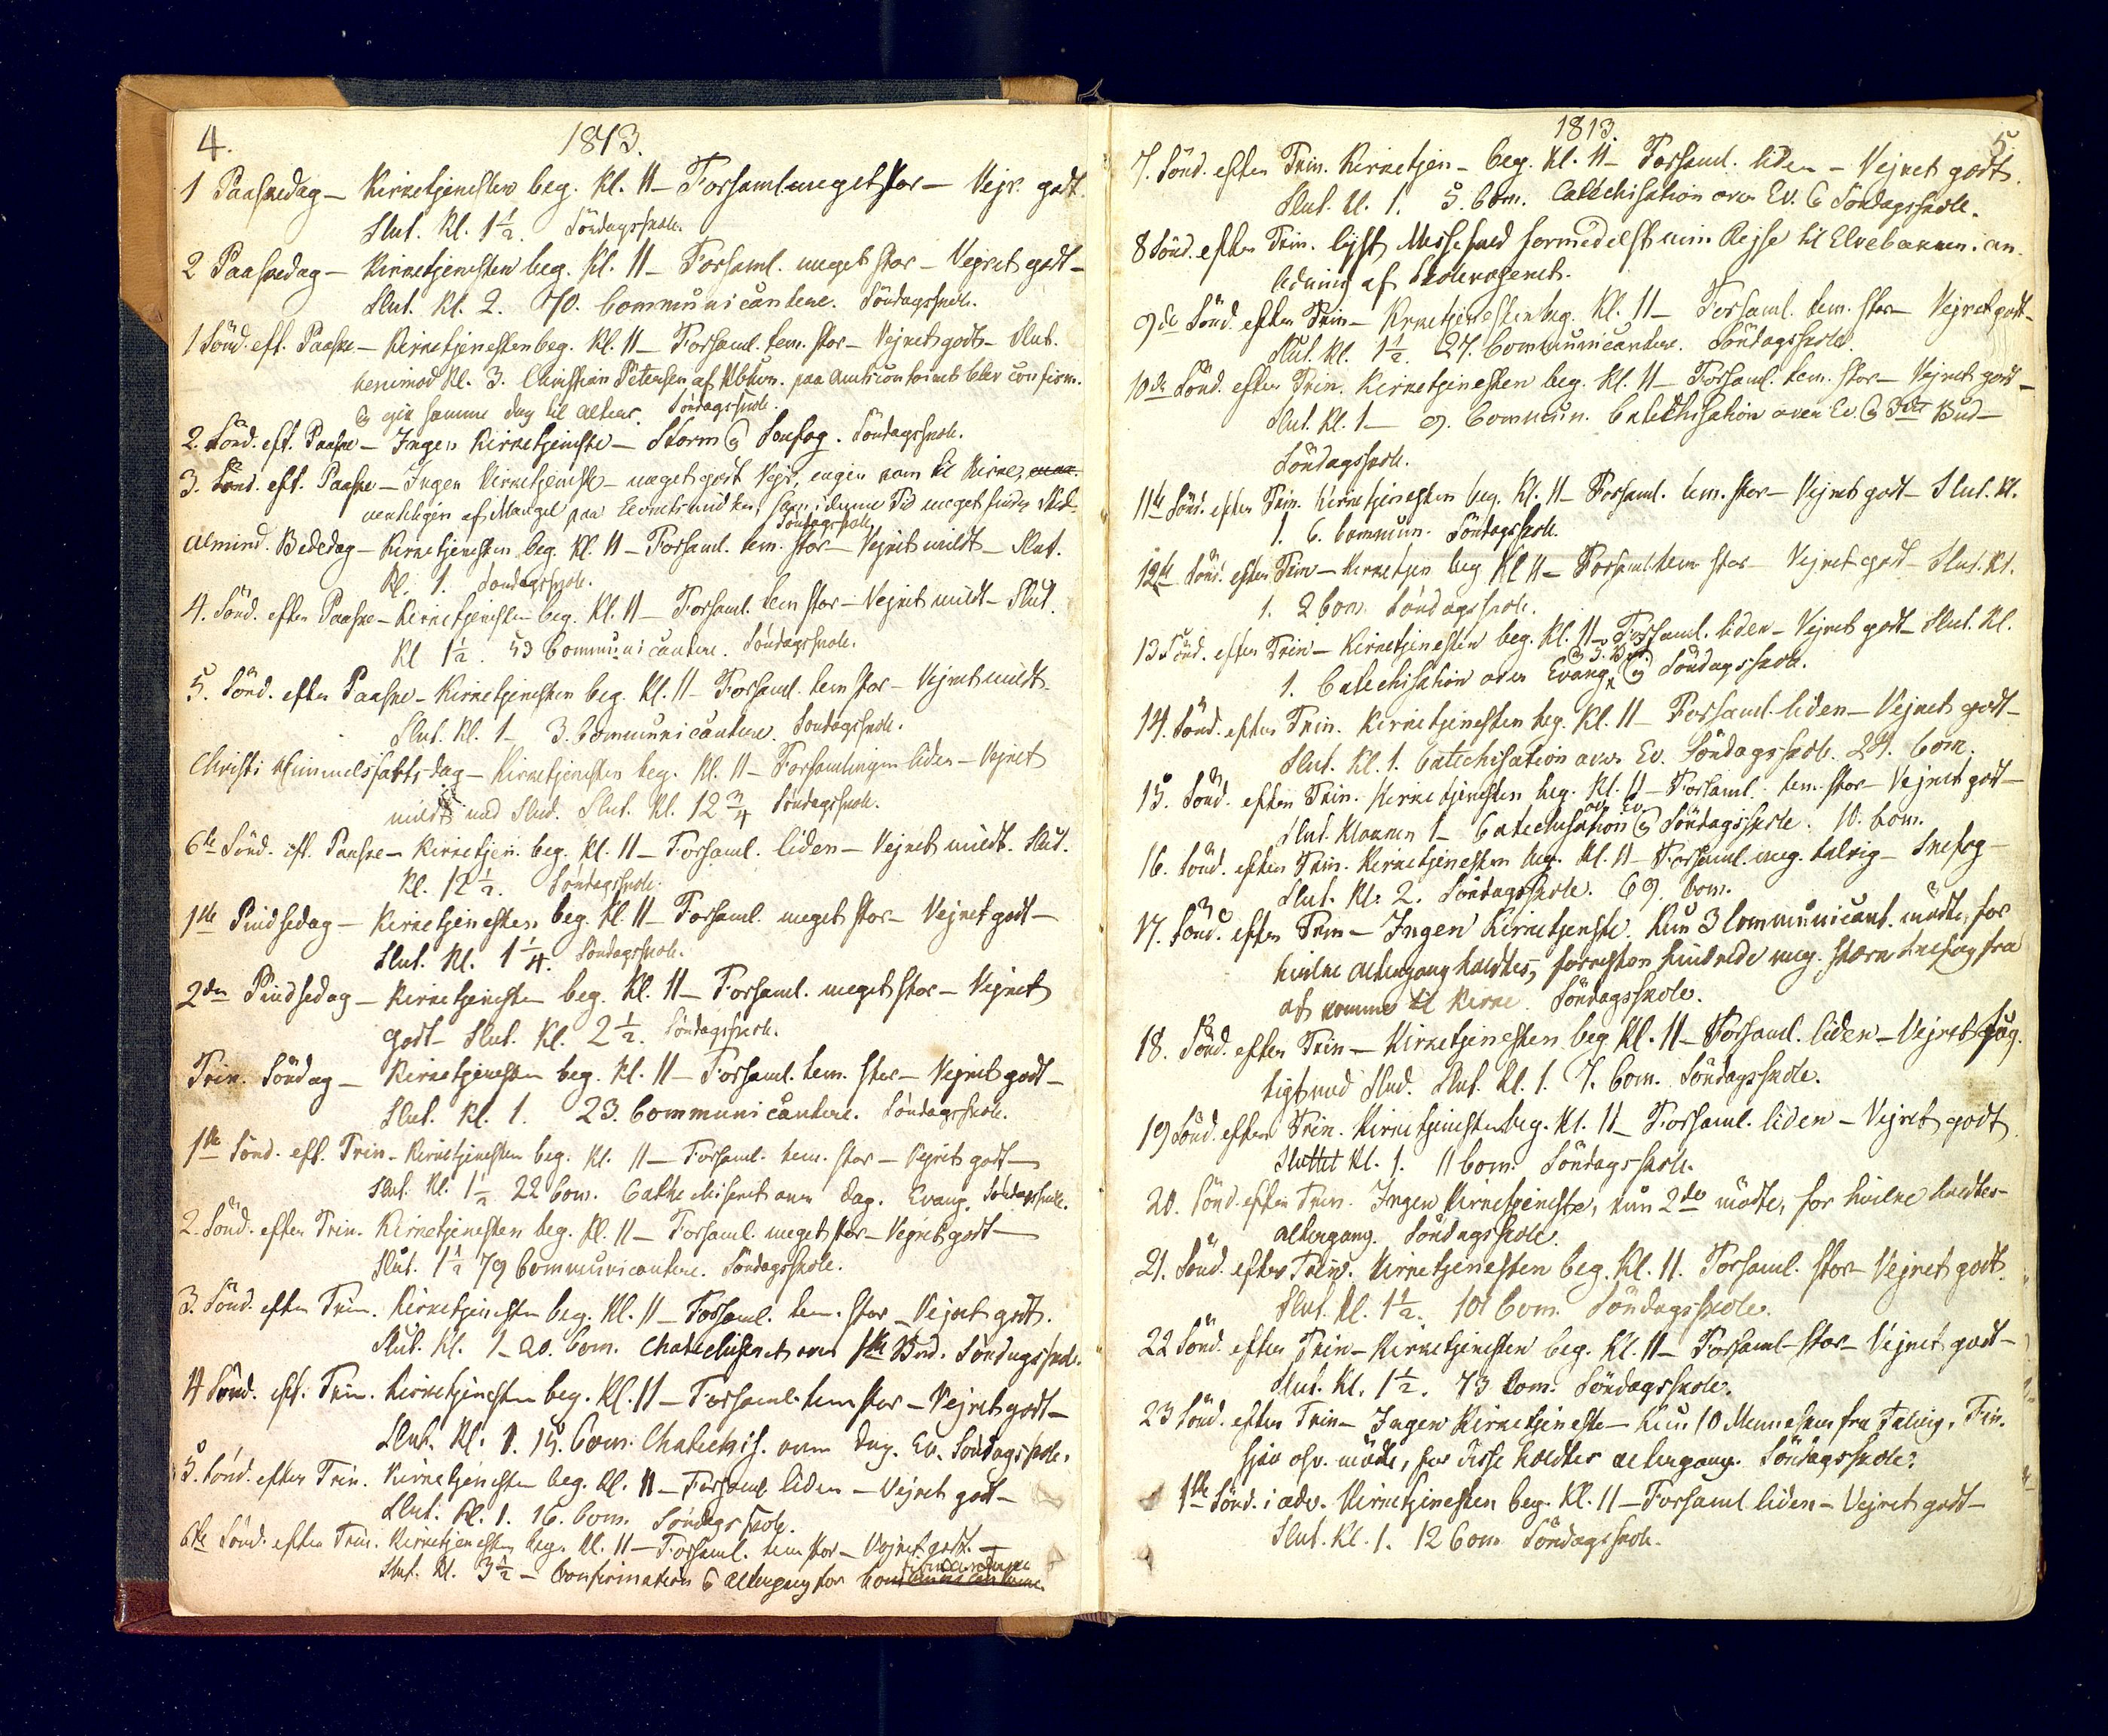 4.
1813.
1 Paaskedag – Kirketjenesten beg. Kl. 11 – Forsaml. meget stor – Vejr. godt.
Slut. Kl. 1 1/2. Söndagsskole.
2 Paaskedag – Kirketjenesten beg. Kl. 11 – Forsaml. meget stor – Vejret godt –
Slut. Kl. 2. 70. Communicantere. Söndagsskole.
1 Sönd. eft. Paaske – Kirketjenesten beg. Kl. 11 – Forsaml. tem. stor – Vejret godt – Slut.
henimod Kl. 3. Christian Petersen af Kbhvn. paa Amtscontoiret blev confirm.
og gik samme dag til alters. Söndagsskole.
2. Sönd. eft. Paaske – Ingen Kirketjeneste – Storm og Snefog. Söndagsskole.
3. Sönd. eft. Paaske – Ingen Kirketjeneste – meget godt Vejr, ingen kom til Kirke,
venteligen af Mangel paa Levnetsmidler, som i denne Tid meget
Söndagsskole
Almind. Bededag – Kirketjenesten beg. Kl. 11 – Forsaml. tem. stor – Vejret mildt – Slut.
Kl. 1. Söndagsskole.
4. Sönd. efter Paaske – Kirketjenesten beg. Kl. 11 – Forsaml. tem stor – Vejret mildt – Slut.
Kl 1 1/2. 53 Communicantere. Söndagsskole.
5. Sönd. efter Paaske – Kirketjenesten beg. Kl. 11 – Forsaml. tem stor – Vejret mildt.
Slut. Kl. 1 – 3. Communicantere. Söndagsskole.
Christi Himmelsfartsdag – Kirketjenesten beg. Kl. 11 – Forsamlingen liden – Vejret
mildt med Slud. Slut. Kl. 12 3/4 Söndagsskole.
6te Sönd. eft. Paaske – Kirketjen. beg. Kl. 11 – Forsaml. liden – Vejret mildt. Slut.
Kl. 12 1/2. Söndagsskole.
1ste Pindsedag – Kirketjenesten beg. Kl. 11 – Forsaml. meget stor – Vejret godt –
Slut. Kl. 1 1/4. Söndagsskole.
2den Pindsedag – Kirketjenesten beg. Kl. 11 – Forsaml. meget stor – Vejret
godt – Slut. Kl. 2 1/2. Söndagsskole.
Trin. Söndag – Kirketjenesten beg. Kl. 11 – Forsaml. tem. stor – Vejret godt –
Slut. Kl. 1. 23. Communicantere. Söndagsskole.
1ste Sönd. eft. Trin – Kirketjenesten beg. Kl. 11 – Forsaml. tem. stor – Vejret godt –
Slut. Kl. 1 1/2 22 Com. Cathechiseret over dag. Evang. Söndagsskole.
2. Sönd. efter Trin. Kirketjenesten beg. Kl. 11 – Forsaml. meget stor – Vejret godt –
Slut. 1 1/2 79 Communicantere. Söndagsskole.
3. Sönd. efter Trin. Kirketjenesten beg. Kl. 11 – Forsaml. tem. stor – Vejret godt.
Slut. Kl. 1 – 20. Com. Chatechiseret over 1ste Bud. Söndagsskole.
4 Sönd. eft. Trin. Kirketjenesten beg. Kl. 11 – Forsaml. tem stor – Vejret godt –
Slut. Kl. 1. 15. Com. Chatechis. over dag. Ev. Söndagsskole.
5. Sönd. efter Trin. Kirketjenesten beg. Kl. 11 – Forsaml. liden – Vejret godt –
Slut. Kl. 1. 16. Com. Söndagsskole.
6te Sönd. efter Trin. Kirketjenesten beg. Kl. 11 – Forsaml. tem stor – Vejret godt –
Slut. Kl. 3 1/2 – Confirmation & Altergang for
1813.
5.
7. Sönd. efter Trin. Kirketjen – beg. Kl. 11 – Forsaml. liden – Vejret godt.
Slut. Kl. 1. 5. Com. Catechisation over Ev. & Söndagsskole.
8 Sönd. efter Trin. lyst Messefald formedelst min Rejse til Elvebakken i an-
ledning af Skolevæsenet.
9de Sönd. efter Trin – Kirketjenesten beg. Kl. 11 – Forsaml. tem. stor – Vejret godt –
Slut. Kl. 1 1/2. 27. Communicantere. Söndagsskole.
10de Sönd. efter Trin. Kirketjenesten beg. Kl. 11 – Forsaml. tem. stor – Vejret godt –
Slut. Kl. 1 – 9. Commun. Catechisation over Ev. & 3die Bud –
Söndagsskole.
11te Sönd. efter Trin. Kirketjenesten beg. Kl. 11 – Forsaml. tem. stor – Vejret godt – Slut. Kl.
1. 6. Commun. Söndagsskole.
12te Sönd. efter Trin – Kirketjen beg Kl 11 – Forsaml. tem stor – Vejret godt – Slut. Kl.
1. 2 Com. Söndagsskole.
13 Sönd. efter Trin – Kirketjenesten beg. Kl. 11 – Forsaml. liden – Vejret godt – Slut. Kl.
1. Catechisation over Evang. & 5. Bud. og Söndagsskole.
14. Sönd. efter Trin. Kirketjenesten beg. Kl. 11 – Forsaml. liden – Vejret godt –
Slut. Kl. 1. Catechisation over Ev. Söndagsskole. 24. Com.
15. Sönd. efter Trin. Kirketjenesten beg. Kl. 11 – Forsaml. tem. stor – Vejret godt –
Slut. Klokken 1 – Catechisation ov. Ev. og Söndagsskole. 10. Com.
16. Sönd. efter Trin. Kirketjenesten beg. Kl. 11 – Forsaml. meg. talrig – Snefog –
Slut. Kl. 2. Söndagsskole. 69. Com.
17. Sönd. efter Trin – Ingen Kirketjeneste. Kun 3 Communicant. mödte, for
hvilke Altergang holdtes, forresten hindrede meg. stærk Snefog fra
at komme til Kirke. Söndagsskole.
18. Sönd. efter Trin – Kirketjenesten beg. Kl. 11 – Forsaml. liden – Vejret fug-
tigt med Slud. Slut. Kl. 1. 7. Com. Söndagsskole.
19 Sönd. efter Trin. Kirketjenesten beg. Kl. 11 – Forsaml. liden – Vejret godt.
Sluttet Kl. 1. 11 Com. Söndagsskole.
20. Sönd. efter Trin. Ingen Kirketjeneste, kun 2de mödte, for hvilke holdtes
Altergang. Söndagsskole.
21. Sönd. efter Trin. Kirketjenesten beg. Kl. 11. Forsaml. stor – Vejret godt.
Slut. Kl. 1 1/2. 101 Com. Söndagsskole.
22 Sönd. efter Trin – Kirketjenesten beg. Kl. 11 – Forsaml stor – Vejret godt –
Slut. Kl. 1 1/2. 73 Com. Söndagsskole.
23 Sönd. efter Trin – Ingen Kirketjeneste – Kun 10 Mennesker fra Talvig, Fin-
mödte, for disse holdtes Altergang. Söndagsskole.
1ste Sönd. i Adv. Kirketjenesten beg. Kl. 11 – Forsaml liden – Vejret godt –
Slut. Kl. 1. 12 Com Söndagsskole.